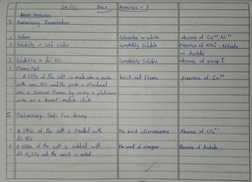 Single Salt Analysis - 3
Basic Analysis
I. Preliminary Examination
1. Colour Colourless or white absence of Cu²⁺, Ni²⁺
2. Solubility in Cold water Completely Soluble Presence of NH₄⁺, Nitrate
or Acetate
3. Solubility in dil HCl Completely Soluble absence of group I
4. Flame Test
A little of the salt is made into a paste brick red flame presence of Ca²⁺
with conc. HCl and the paste is introduced
into a Bunsen flame by using a platinum
wire or a burnt match stick
II Preliminary Tests For Anion
1 A little of the salt is treated with No brisk effervescence Absence of CO₃²⁻
dil. HCl
2 A little of the salt is rubbed with No smell of vinegar Absence of Acetate
dil H₂SO₄ and the smell is noted.